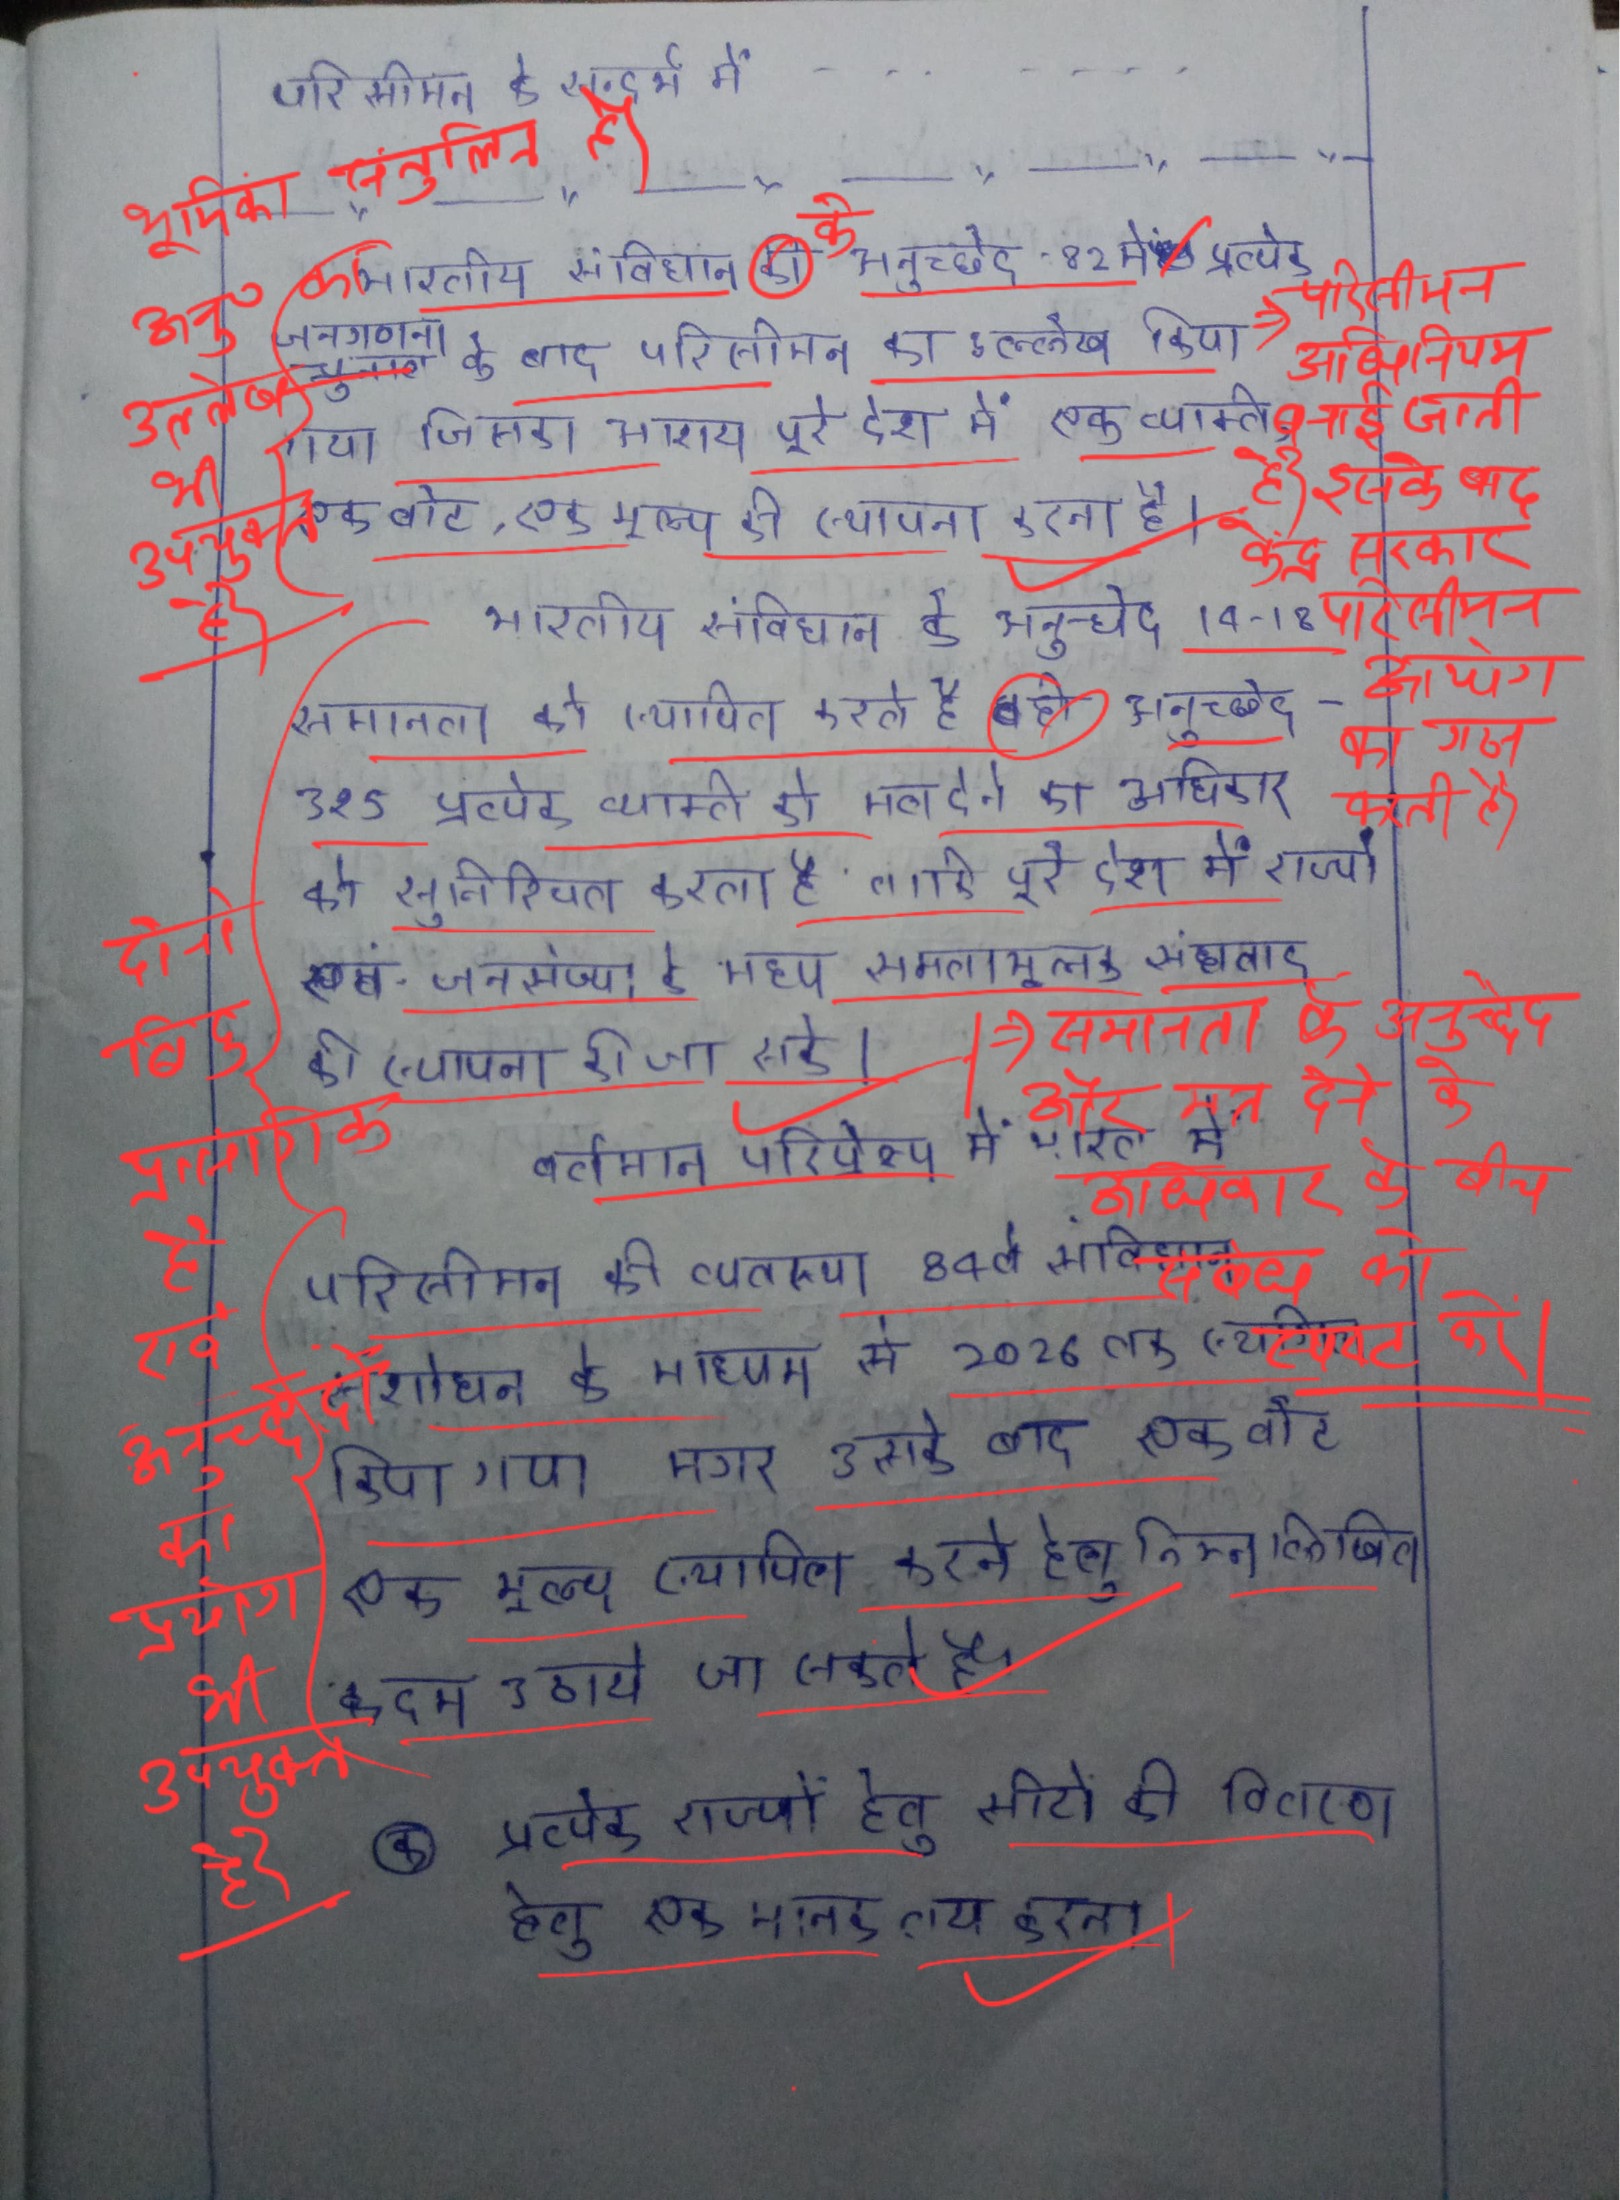 परिसीमन के सन्दर्भ में - - - - - - - -
भूमिका संतुलित है।
भारतीय संविधान की के अनुच्छेद - 82 में प्रत्येक
जनगणना
चुनाव के बाद परिसीमन का उल्लेख किया
गया जिसका आशय पूरे देश में एक व्यक्ति,
एक वोट, एक मूल्य की स्थापना करना है।
अनु० का
उल्लेख
भी
उपयुक्त
है।
⇒ परिसीमन
अधिनियम
बनाई जाती
है। इसके बाद
केंद्र सरकार
परिसीमन
आयोग
का गठन
करती है।
भारतीय संविधान के अनुच्छेद 14-18
समानता को स्थापित करते है वही अनुच्छेद -
325 प्रत्येक व्यक्ति को मत देने का अधिकार
को सुनिश्चित करता है ताकि पूरे देश में राज्यों
एवं जनसंख्या के मध्य समतामूलक संघवाद
की स्थापना की जा सके।
⇒ समानता के अनुच्छेद
और मत देने के
अधिकार के बीच
संबंध को
स्पष्ट करें।
दोनों
बिंदु
प्रासंगिक
है
एवं
अनुच्छेदों
का
प्रयोग
भी
उपयुक्त
है।
वर्तमान परिप्रेक्ष्य में भारत में
परिसीमन की व्यवस्था 84वे संविधान
संशोधन के माध्यम से 2026 तक स्थगित
किया गया मगर उसके बाद एक वोट
एक मूल्य स्थापित करने हेतु निम्नलिखित
कदम उठाये जा सकते है।
क प्रत्येक राज्यों हेतु सीटों की वितरण
हेतु एक मानक तय करना।